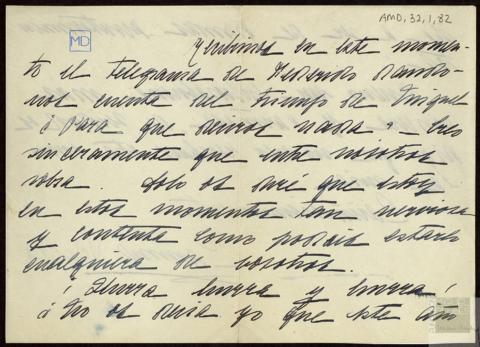 AMD, 32, 1, 82
MD
Recibimos en este momen-
to el telegrama de Federico dando-
nos cuenta del triunfo de Miguel
¿Para que deciros nada? — Creo
sinceramente que entre nosotros
sobra. Solo os diré que estoy
en estos momentos tan nerviosa
y contenta como podais estarlo
cualquiera de vosotros.
¡Hurra hurra y hurra!
¿No os decia yo que este